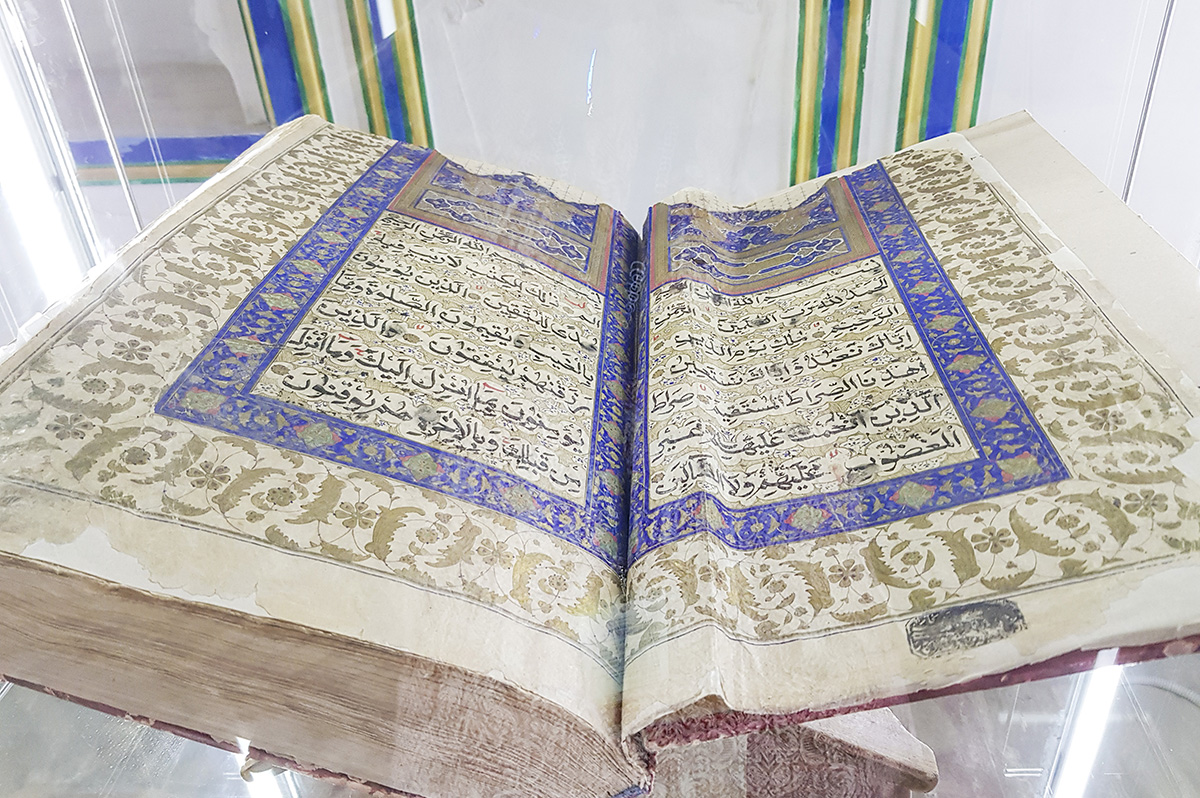 الحمد لله رب العلمين الرحمن
الرحيم ملك يوم الدين
اياك نعبد و اياك نستعين
اهدنا الصراط المستقيم صراط
الذين انعمت عليهم غير
المغضوب عليهم ولا الضالين
بسم الله الرحمن الرحيم
الم ذلك الكتب لا ريب فيه
هدى للمتقين الذين يؤمنون
بالغيب و يقيمون الصلوة ومما
رزقنهم ينفقون والذين
يؤمنون بما انزل اليك وما انزل
من قبلك وبالاخرة هم يوقنون